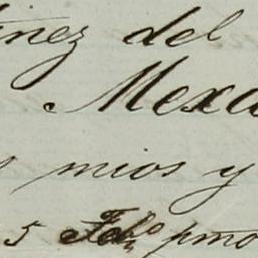 ínez del
Mexi
s mios y
5 Feb.º pmo